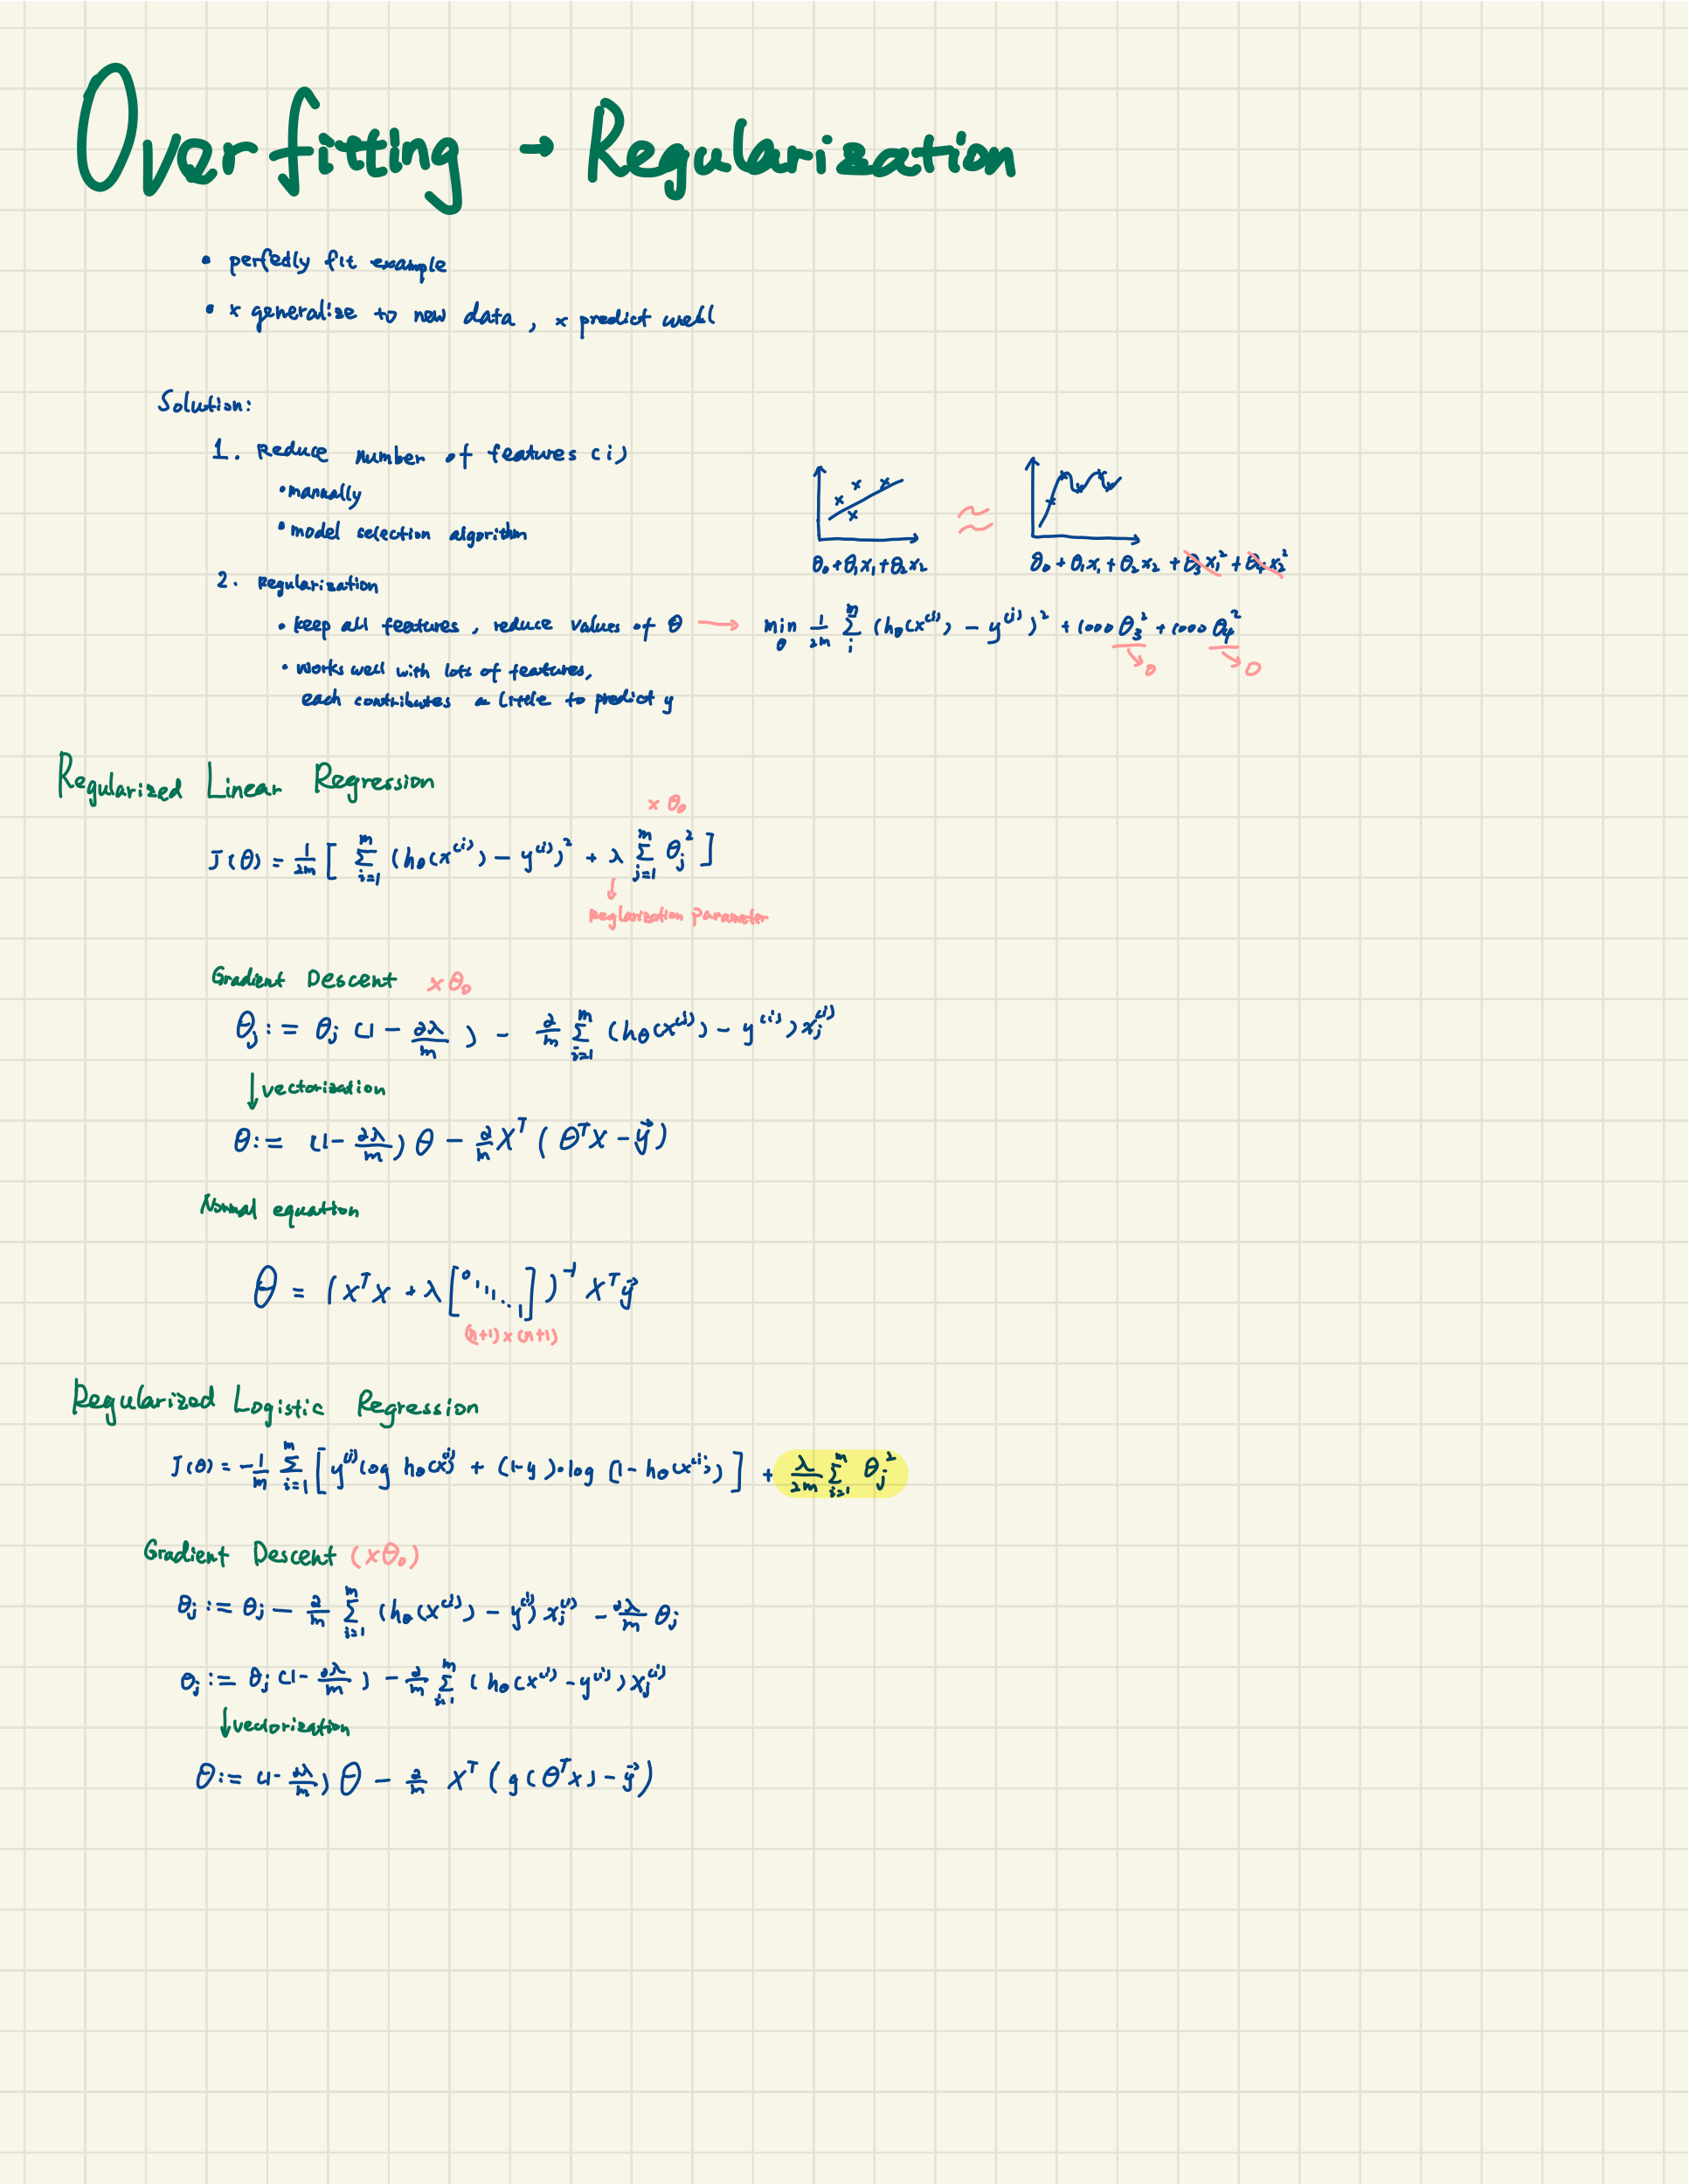 Overfitting → Regularization
• perfectly fit example
• x generalize to new data, x predict well
Solution:
1. Reduce number of features (i)
• manually
• model selection algorithm
θ₀+θ₁x₁+θ₂x₂ ≈ θ₀+θ₁x₁+θ₂x₂+θ₃x₁²+θ₄x₂²
2. Regularization
• keep all features, reduce values of θ → min_θ 1/2m Σ_i^m (h_θ(x^(i)) − y^(i))² + 1000 θ₃² + 1000 θ₄²
→0 →0
• works well with lots of features,
each contributes a little to predict y
Regularized Linear Regression
x θ₀
J(θ) = 1/2m [ Σ_{i=1}^m (h_θ(x^(i)) − y^(i))² + λ Σ_{j=1}^m θ_j² ]
↓
Reglarization parameter
Gradient Descent x θ₀
θ_j := θ_j (1 − ∂λ/m) − ∂/m Σ_{i=1}^m (h_θ(x^(i)) − y^(i)) x_j^(i)
↓ vectorization
θ := (1 − ∂λ/m) θ − ∂/m X^T (θ^T X − y⃗)
Normal equation
θ = (X^T X + λ [0 1 1 ⋱ 1])^-1 X^T y⃗
(n+1) x (n+1)
Regularized Logistic Regression
J(θ) = −1/m Σ_{i=1}^m [y^(i) log h_θ(x^(i)) + (1−y)·log (1−h_θ(x^(i)))] + λ/2m Σ_{i=1}^m θ_j²
Gradient Descent (x θ₀)
θ_j := θ_j − ∂/m Σ_{i=1}^m (h_θ(x^(i)) − y^(i)) x_j^(i) − ∂λ/m θ_j
θ_j := θ_j (1 − ∂λ/m) − ∂/m Σ_{i=1}^m (h_θ(x^(i)) − y^(i)) x_j^(i)
↓ vectorization
θ := (1 − ∂λ/m) θ − ∂/m X^T (g(θ^T x) − y⃗)